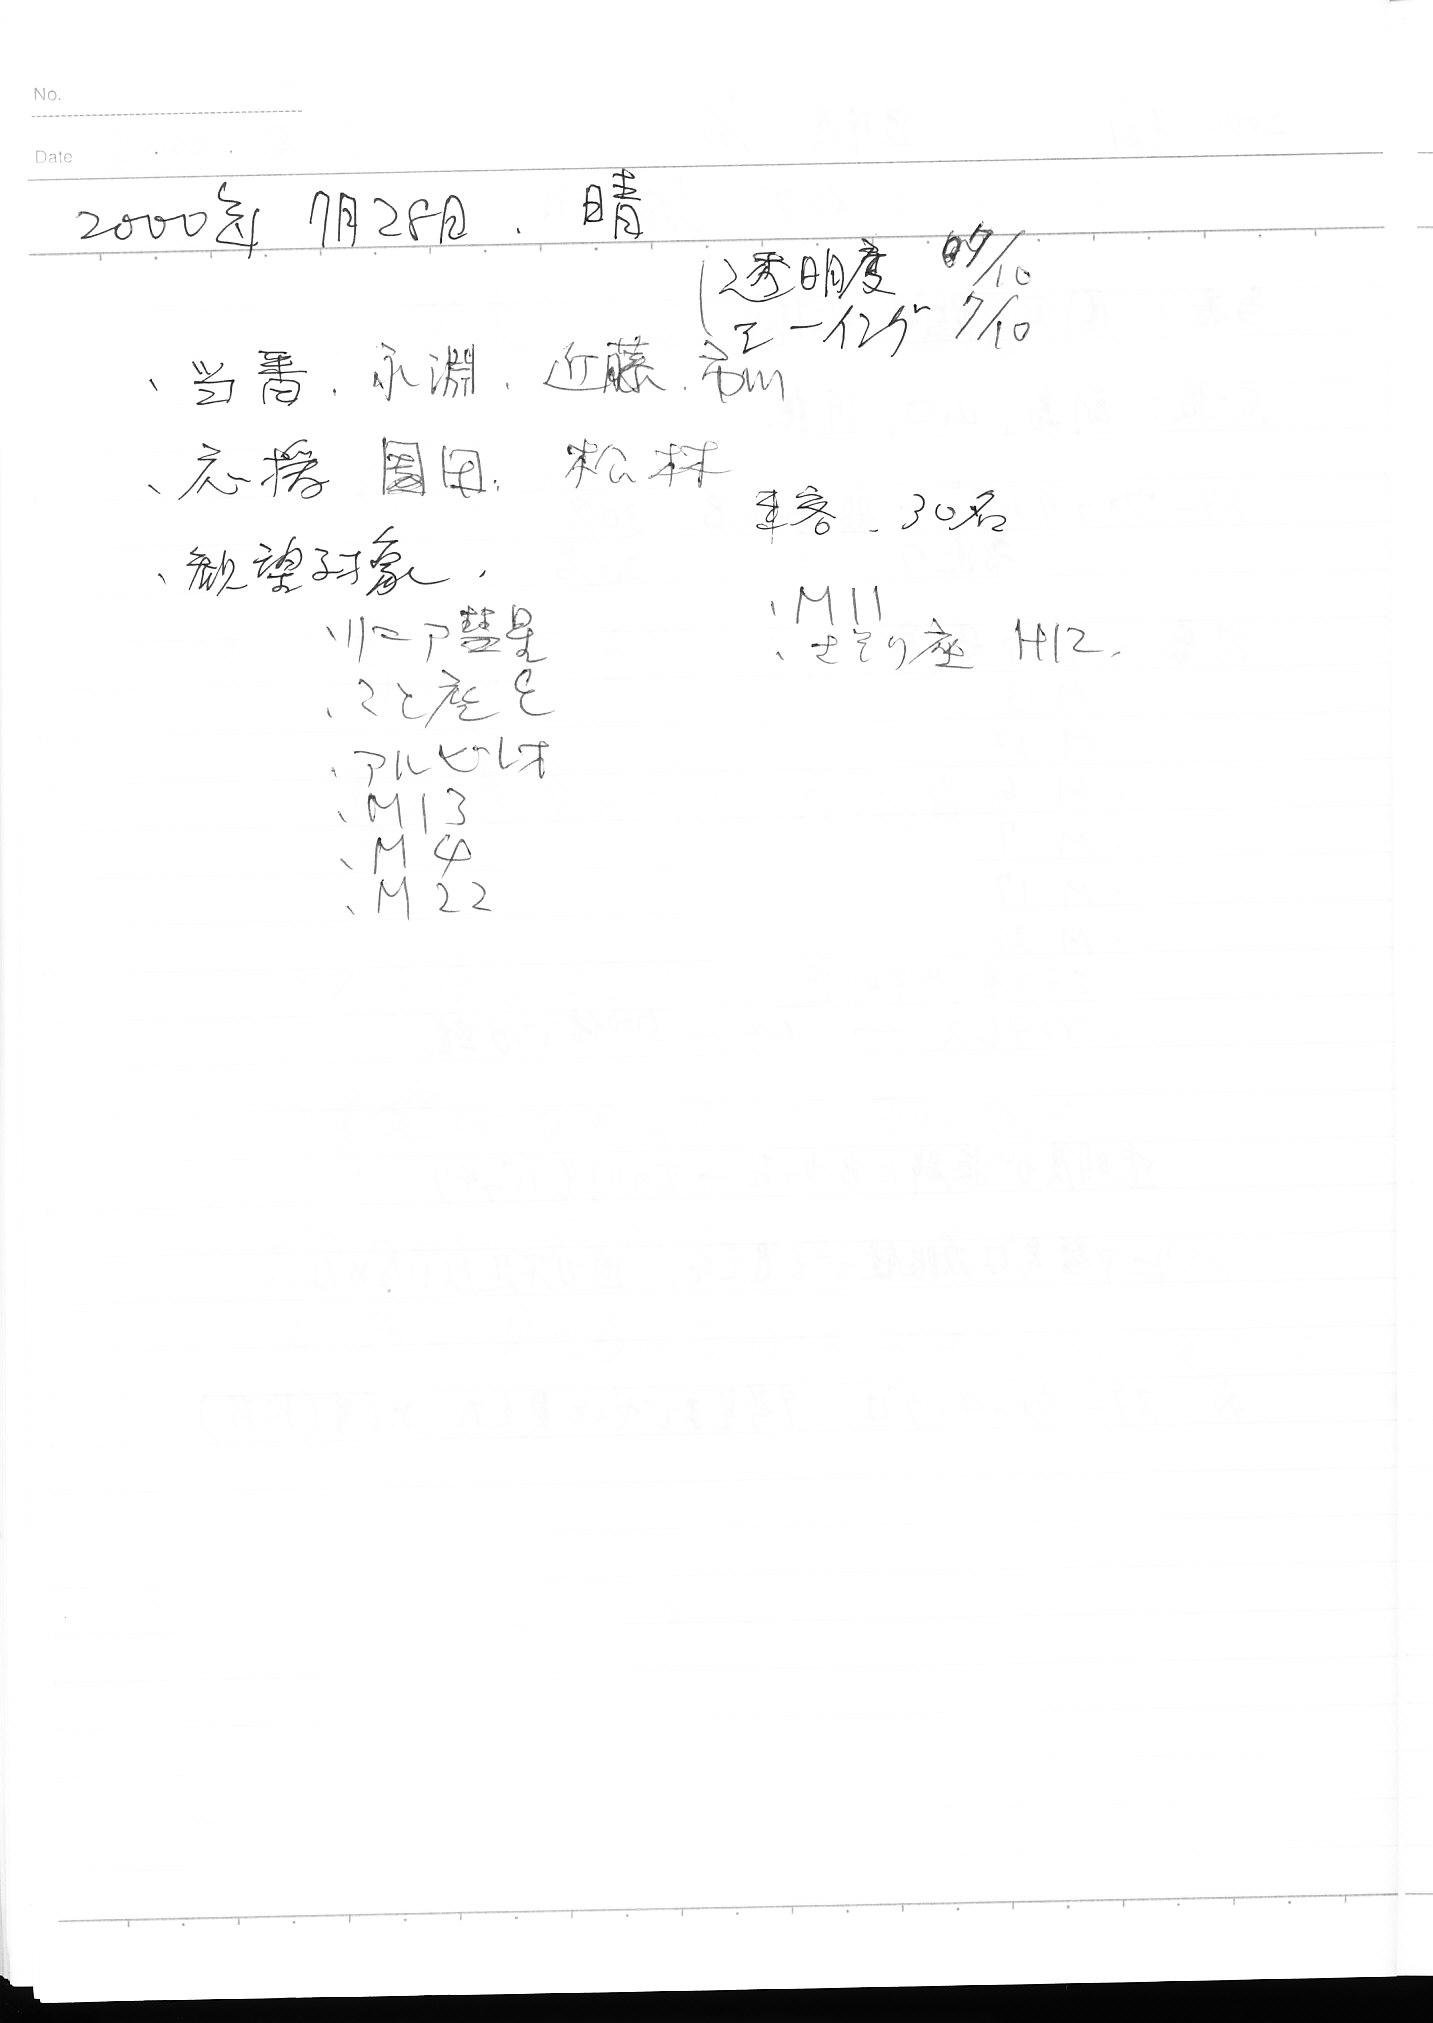 No.
Date
2000年 7月28日. 晴
透明度 7/10
シーイング 7/10
、当番. 永淵. 近藤.
、応援 園田. 松林
来客. 30名
、観望対象.
、リニア彗星
、こと座 ε
、アルビレオ
、M13
、M4
、M22
、M11
、さそり座 H12.